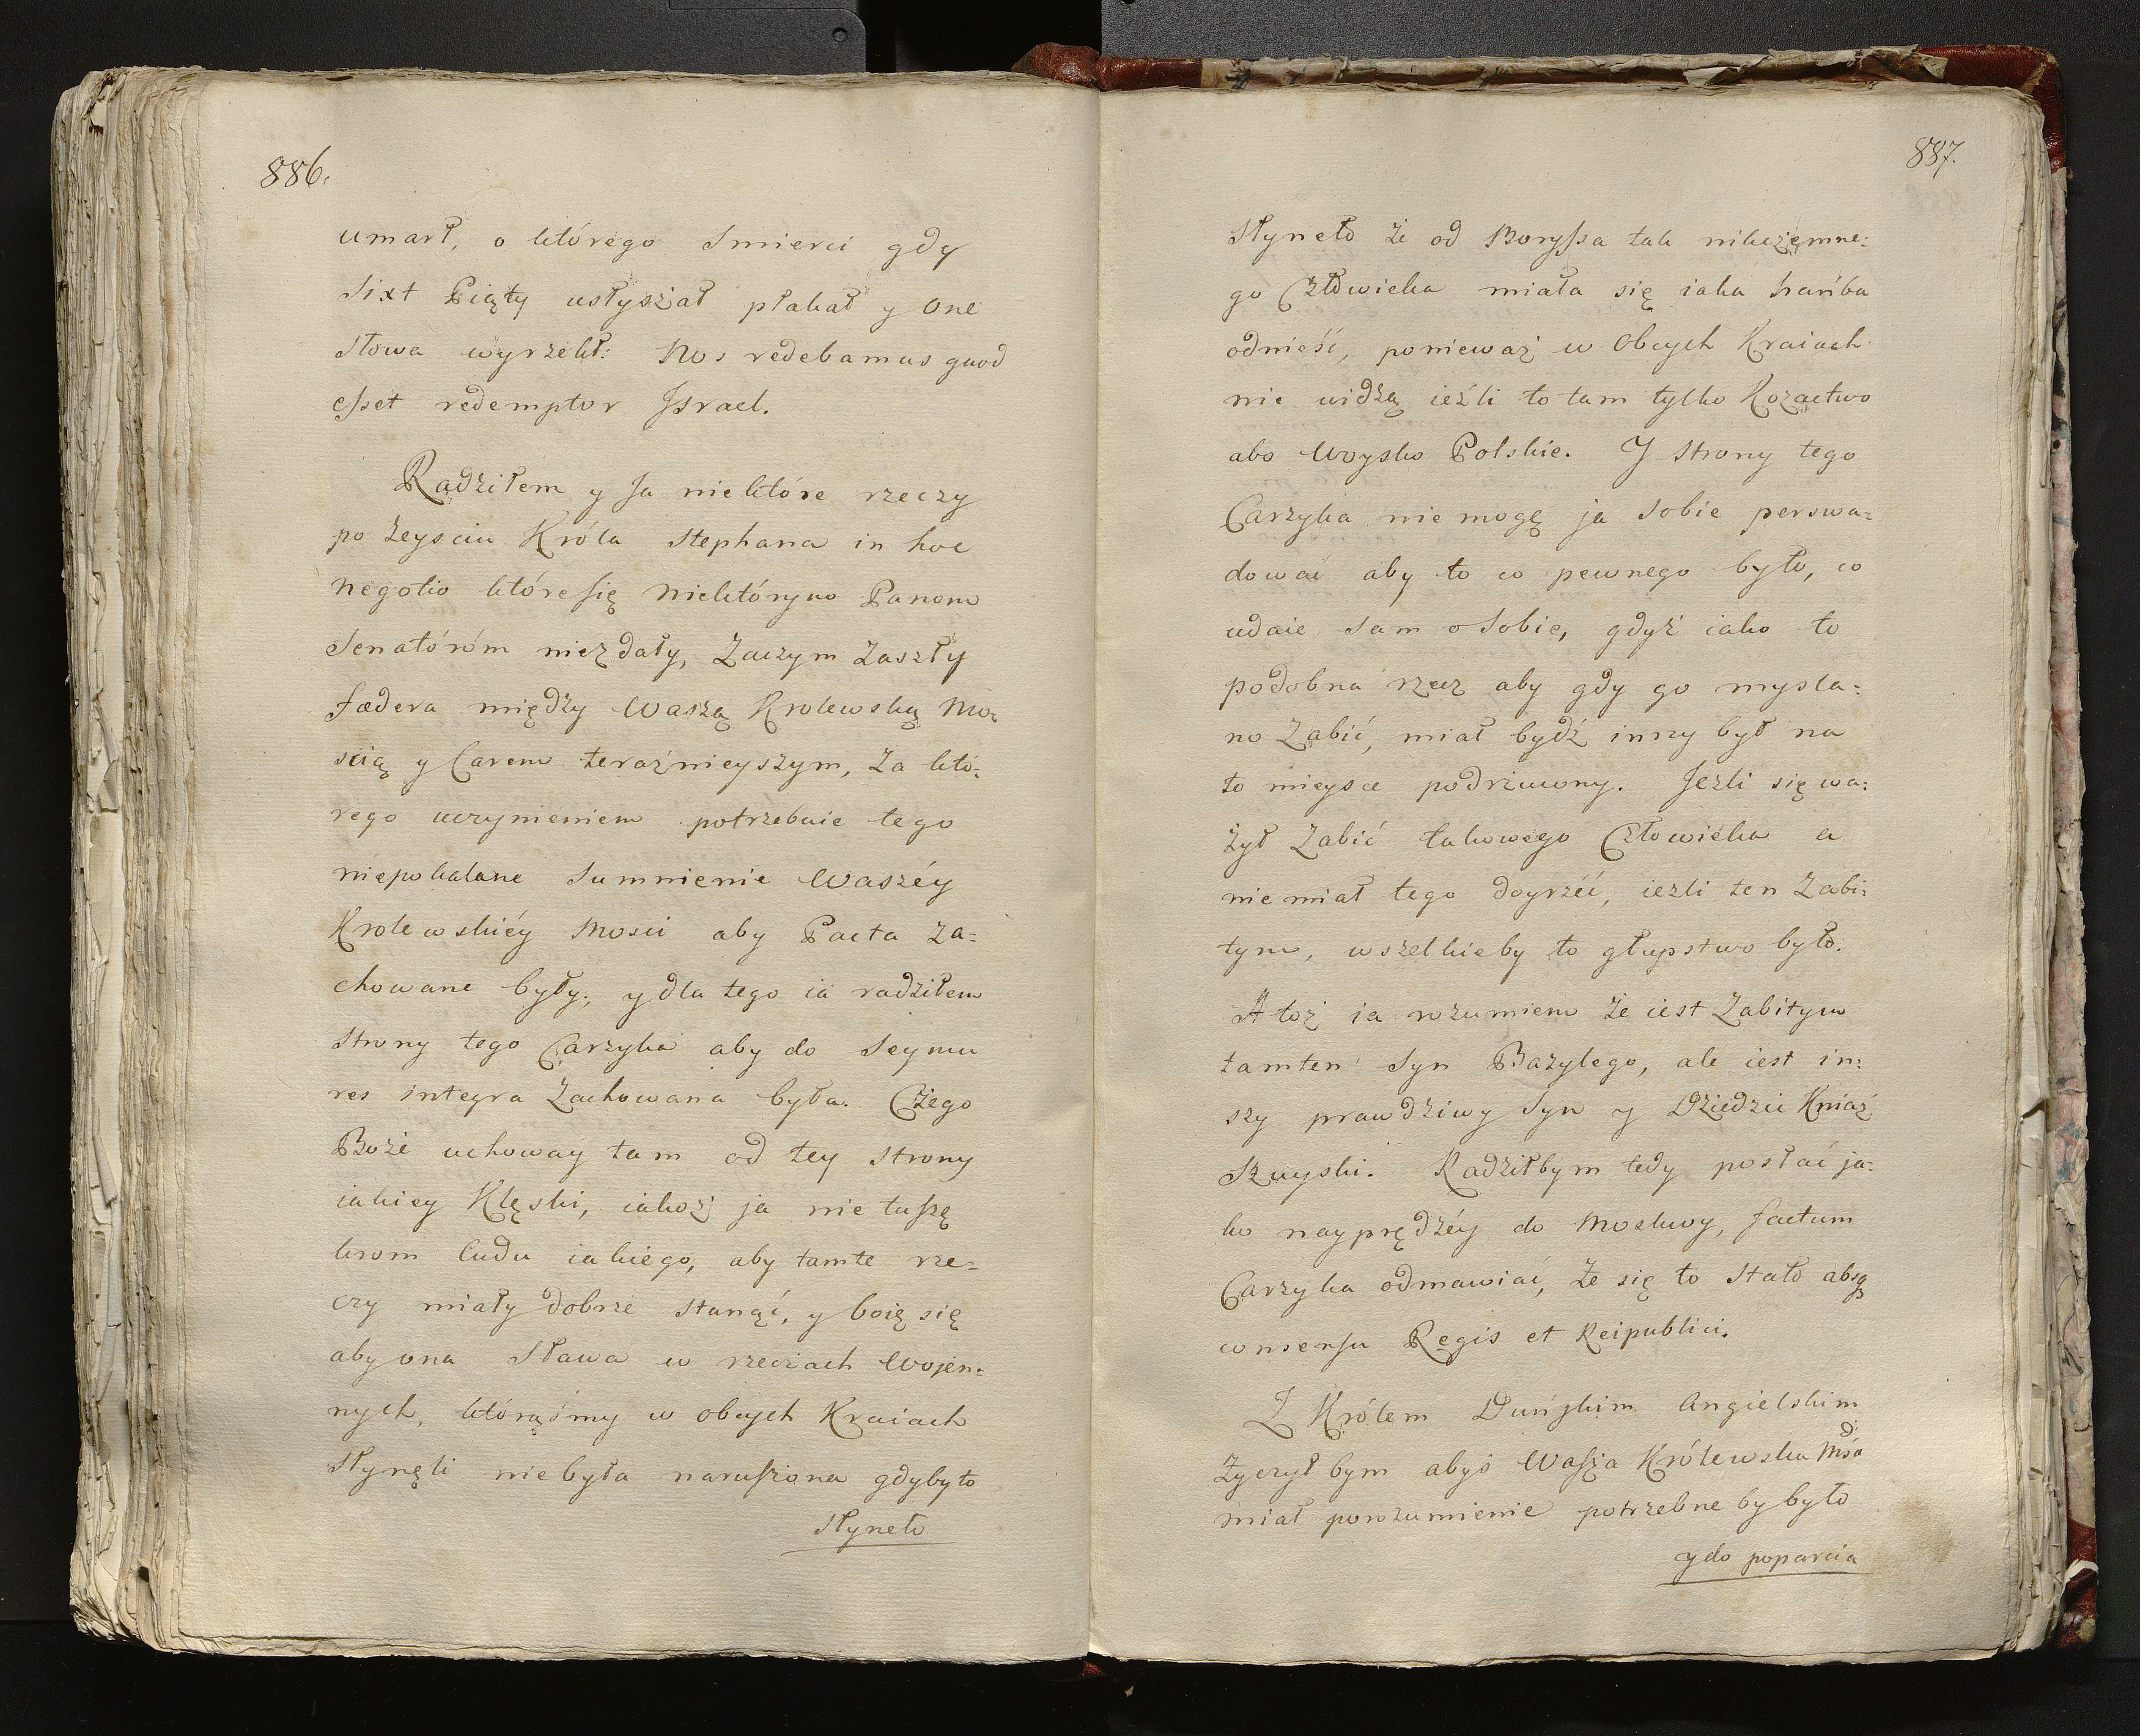 886.
umarł, o którego Smierci gdy
Sixt Piąty usłyszał płakał y one
Słowa wyrzekł: Nos redebamus quod
esset redemptor Jsrael.
Radziłem y Ja niektóre rzeczy
po żeysciu Króla Stephana in hoc
negotio które się niektórym Panom
Senatóróm niezdały, Zaczym Zaszły
fædera między Waszą Krolewską Mo=
scią y Carem teraźnieyszym, Za któ=
rego uczynieniem potrzebuie tego
niepokalane Sumnienie Waszéy
Krolewskiéy Mosci aby Pacta za=
chowane były, y dla tego ia radziłem
Strony tego Carzyka aby do Seymu
res integra Zachowana była. Czego
Boże uchoway tam od tey Strony
iakiey Klęski, iakoż ja nie tuszę
krom ludu iakiego, aby tamte rze=
czy miały dobrze stanąć, y boię się
aby ona Sława w rzeczach Wojen=
nych, którąśmy w obcych Kraiach
Słynęli niebyła naruszona gdyby to
Słyneło
887.
Słyneło że od Boryssa tak nikczemne=
go Człowieka miała się iaka hańba
odnieść, ponieważ w Obcych Kraiach
nie widzą ieźli to tam tylko Kozactwo
abo Woysko Polskie. Y Strony tego
Carzyka nie mogę ja Sobie perswa=
dować aby to co pewnego było, co
udaie Sam o Sobie, gdyż iako to
podobna rzecz aby gdy go mysla=
no Zabić, miał bydź inny był na
to mieysce podrzucony. Jezli się wa=
żył Zabić takowego Człowieka a
nie miał tego doyrzéć, iezli ten Zabi=
tym, wszelkieby to głupstwo było.
A toż ia rozumiem że iest Zabitym
tamten Syn Bazylego, ale iest in=
szy prawdziwy Syn y Dziedzic Kniaź
Szuyski. Radziłbym tedy posłać ja=
ko nayprędzéy do Moskwy, factum
Carzyka odmawiać, że się to Stało absq
consensu Regis et Reipublici.
Z Królem Duńskim Angielskim
Zyczył bym abyś Wasza Królewska Mść
miał porozumienie potrzebne by było
y do poparcia